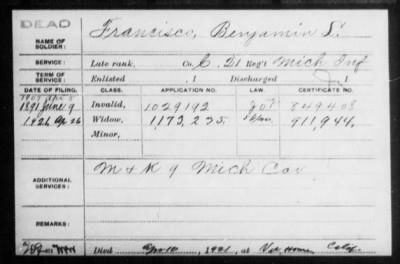 DEAD
NAME OF SOLDIER: Francisco, Benjamin S.
SERVICE: Late rank, Co. C. 21 Reg't Mich Inf
TERM OF SERVICE: Enlisted , 1 Discharged , 1
DATE OF FILING. CLASS. APPLICATION NO. LAW. CERTIFICATE NO.
1891 June 9 Invalid, 1029192 849408
Widow, 1173,235 911,944
Minor,
ADDITIONAL SERVICES: M & K 9 Mich Cav
REMARKS:
Died Apr 10, 1921, at Calif.